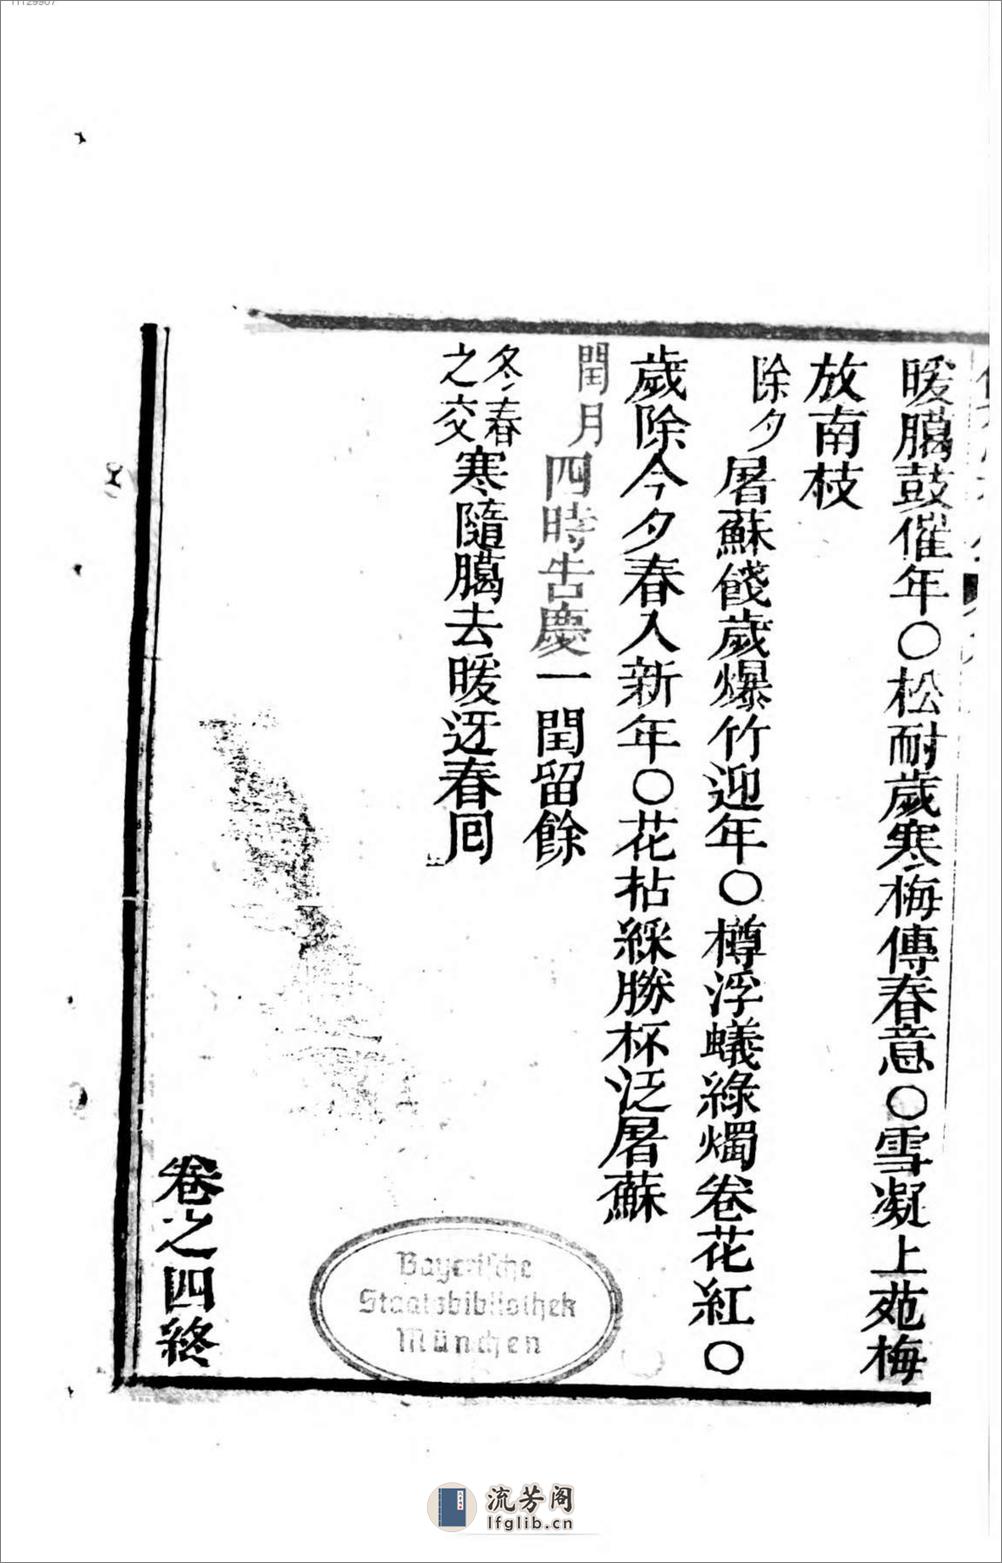 暖臈鼓催年○松耐歲寒梅傳春意○雪凝上苑梅
放南枝
除夕屠蘇餞歲爆竹迎年○樽浮蟻綠燭卷花紅○
歲除今夕春入新年○花拈綵勝杯泛屠蘇
閏月四時告慶一閏留餘
冬春之交寒隨臈去暖迓春囘
卷之四終
Bayerische
Staatsbibliothek
München
流芳阁
lfglib.cn